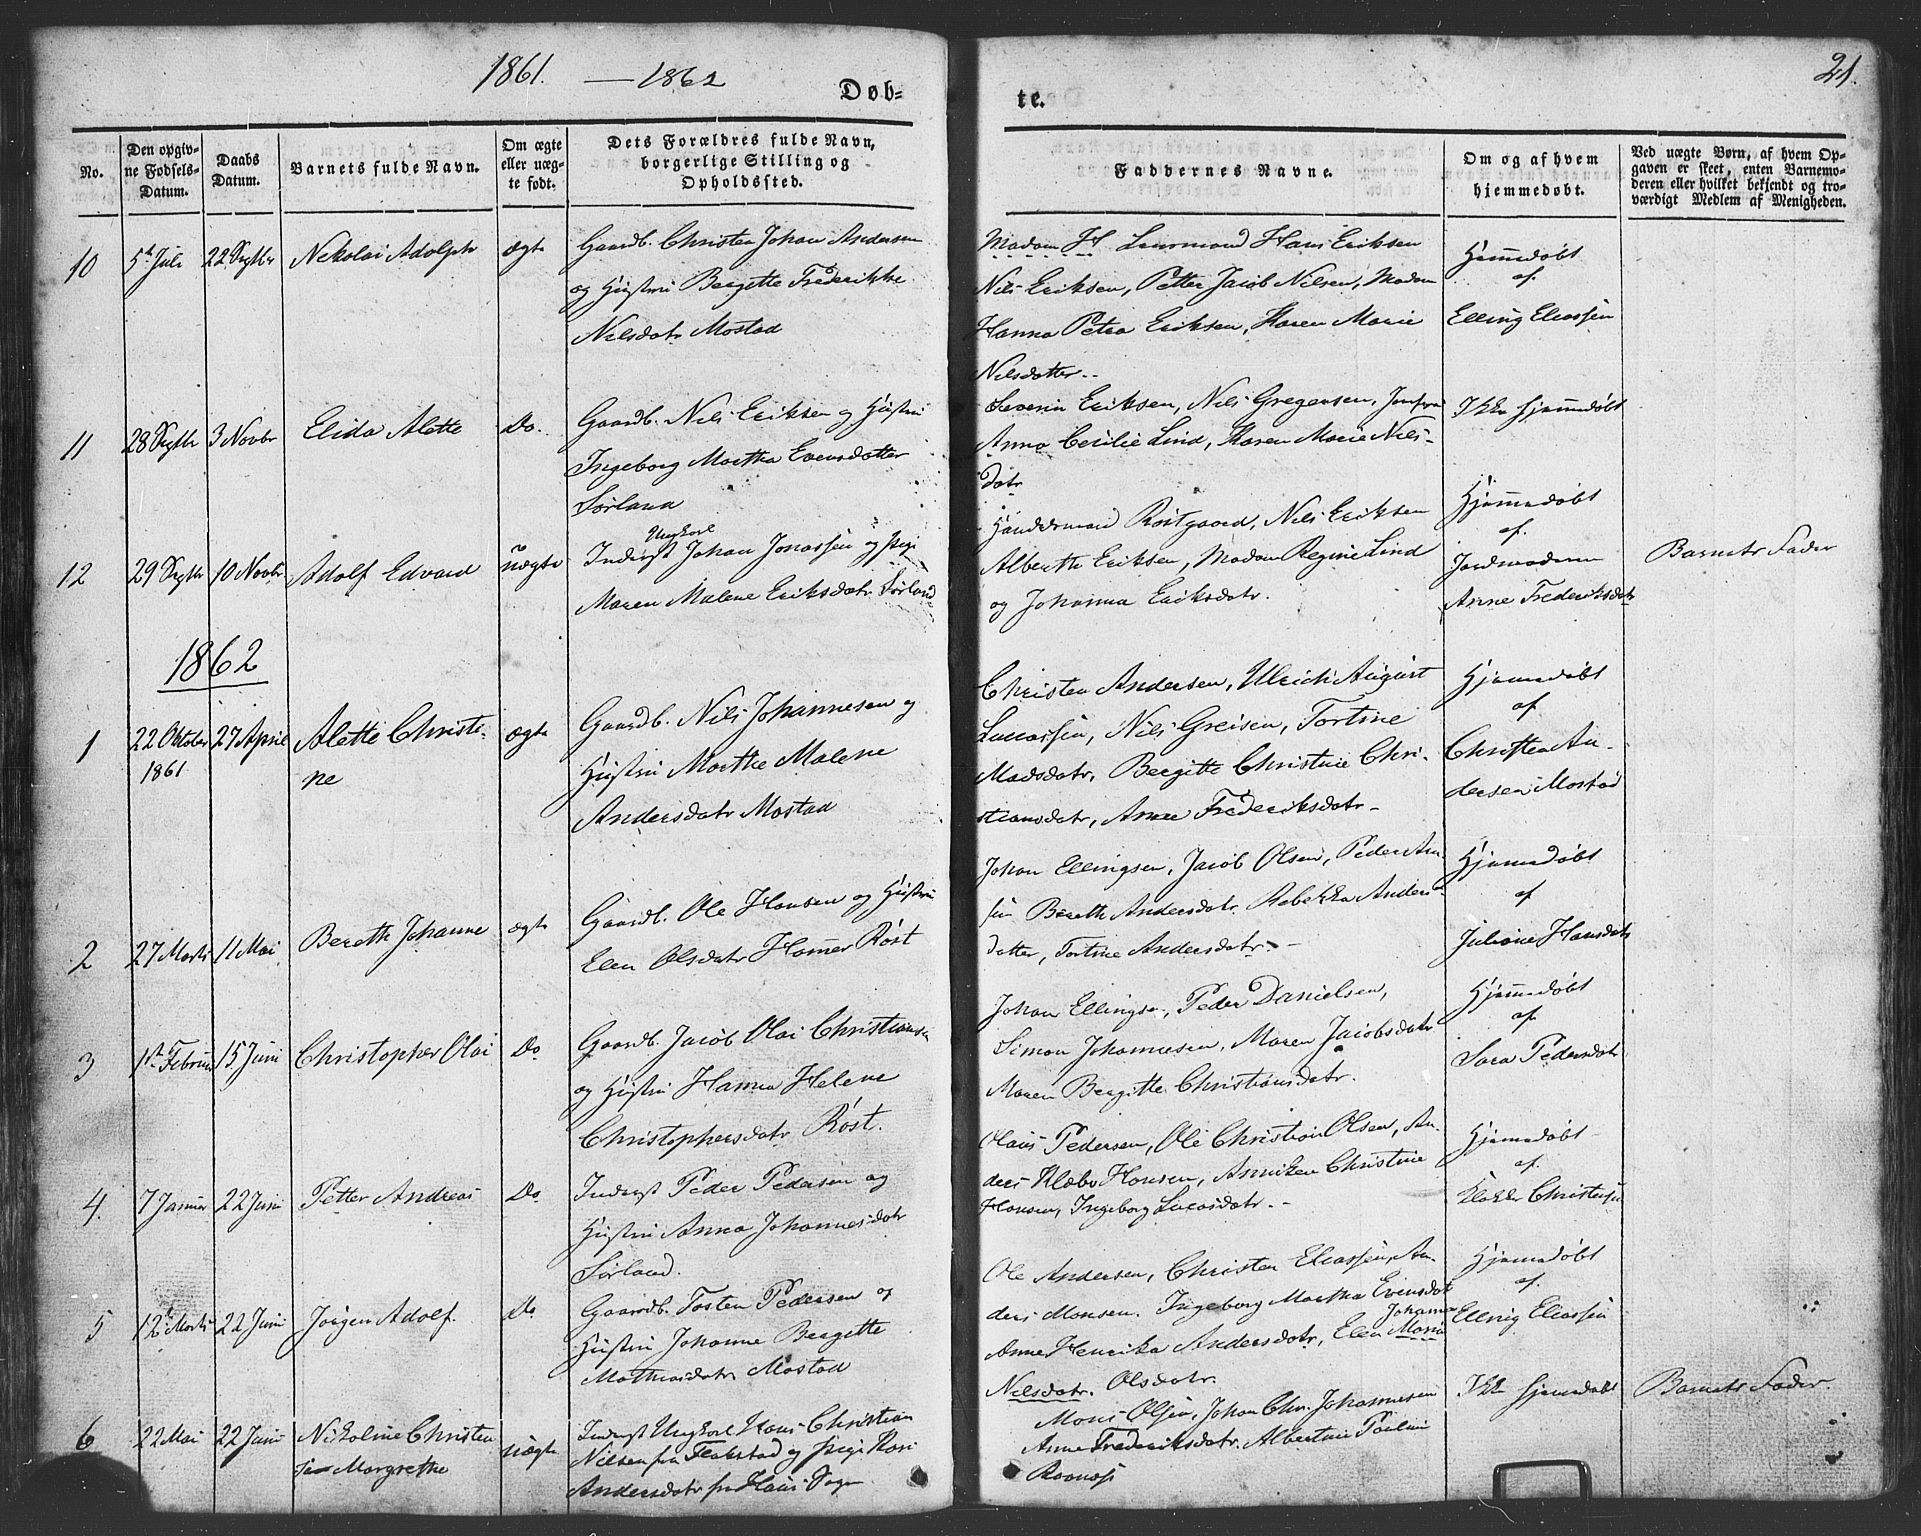 1861. — 1862
Døb-
te.
21.
No.
Den opgiv-
ne Fødsels-
Datum.
Daabs
Datum.
Barnets fulde Navn.
Om ægte
eller uæg-
te født.
Dets Forældres fulde Navn,
borgerlige Stilling og
Opholdssted.
Faddernes Navne.
Om og af hvem
hjemmedøbt.
Ved uægte Børn, af hvem Op-
gaven er skeet, enten Barnemo-
deren eller hvilket bekjendt og tro-
værdigt Medlem af Menigheden.
10
5te Juli
22 Septbr
Nikolai Adolph
ægte
Gaardb. Christen Johan Andersen
og Hustru Bergitte Frederikke
Nilsdatr Mostad
Madam H. Hans Eriksen
Nils Eriksen, Petter Jacob Nilsen, Madam
Hanna Petra Eriksen, Karen Marie
Nilsdatter.
Hjemmedøbt
af
Elling Eliassen
11
28 Septbr
3 Novbr
Elida Alette
Do.
Gaardb. Nils Eriksen og Hustru
Ingeborg Martha Evensdatter
Sørland
Severin Eriksen, Nils Gregersen, Jomfru
Anna Cecilie Lind, Karen Marie Nils-
datr
Ikke hjemmedøbt
12
29 Septbr
10 Novbr
Adolf Edvard
uægte
Ungkarl
Inderst Johan Jonassen og Pige
Maren Malene Eriksdatr Sørland
Handelsmand Rostgaard, Nils Eriksen
Alberth Eriksen, Madam Regine Lind
og Johanna Eriksdatr.
Hjemmedøbt
af
Jordmoderen
Anne Frederiksdatr
Barnets Fader
1862
1
22 Oktober
1861
27 April
Alette Christi-
ne
ægte
Gaardb. Nils Johannesen og
Hustru Marthe Malene
Andersdatr Mostad
Christen Andersen, Ulrich August
Lucassen, Nils Greisen, Tortine
Madsdatr, Bergitte Christine Chri-
stiansdatr, Anne Frederiksdatr
Hjemmedøbt
af
Christen An-
dersen Mostad
2
27 Marts
11 Mai
Bereth Johanne
ægte
Gaardb. Ole Hansen og Hustru
Elen Olsdatr Hamer Røst
Johan Ellingsen, Jacob Olsen, Peder An-
sen Bereth Andersdatr. Rebekka Anders
datter, Tortine Andersdatr.
Hjemmedøbt
af
Juliane Hansdatr
3
1ste Februar
15 Juni
Christopher Olai
Do
Gaardb. Jacob Olai Christiansen
og Hustru Hanna Helene
Christophersdatr Røst.
Johan Ellingsen, Peder Danielsen,
Simon Johannesen, Maren Jacobsdatr
Maren Bergitte Christiansdatr.
Hjemmedøbt
af
Sara Pedersdatr
4.
7 Januar
22 Juni
Petter Andreas
Do
Inderst Peder Pedersen og
Hustru Anna Johannesdatr
Sørland.
Olaus Pedersen, Ole Christian Olsen, An-
ders Klæbo Hansen, Anniken Christine
Hansen, Ingeborg Lucasdatr.
Hjemmedøbt
af
Klokker Christensen
5
12te Marts
22 Juni
Jørgen Adolf.
Do
Gaardb. Tosten Pedersen og
Hustru Johanne Bergitte
Mathiasdatr Mostad
Ole Andersen, Christen Eliassen, An-
ders Monsen. Ingeborg Martha Evensdatr
Johanna
Anne Henrika Andersdatr, Elen Maria
Nilsdatr. Olsdatr.
Hjemmedøbt
af
Elling Eliassen
6
22 Mai
22 Juni
Nikoline Christen
se Margrethe
uægte
Inderst Ungkarl Hans Christian
Nilsen fra Flakstad og Pige Kari
Andersdatr fra Haus Sogn
Mons Olsen, Johan Chr. Johannesen
Anne Frederiksdatr. Albertine Pauline
Ikke hjemmedøbt
Barnets Fader.